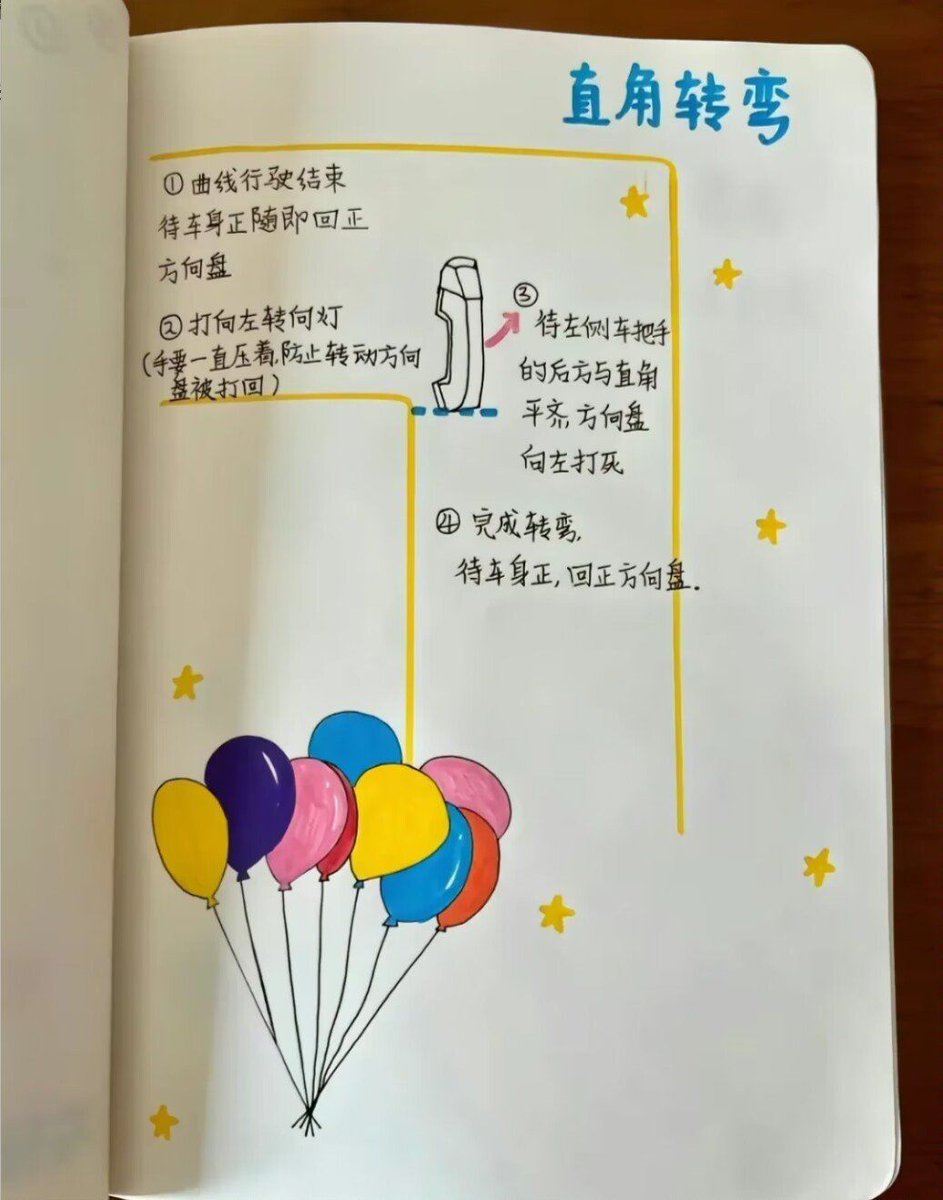 直角转弯
①曲线行驶结束
待车身正随即回正
方向盘
②打向左转向灯
(手要一直压着,防止转动方向
盘被打回)
③
待左侧车把手
的后方与直角
平齐,方向盘
向左打死
④完成转弯,
待车身正,回正方向盘.